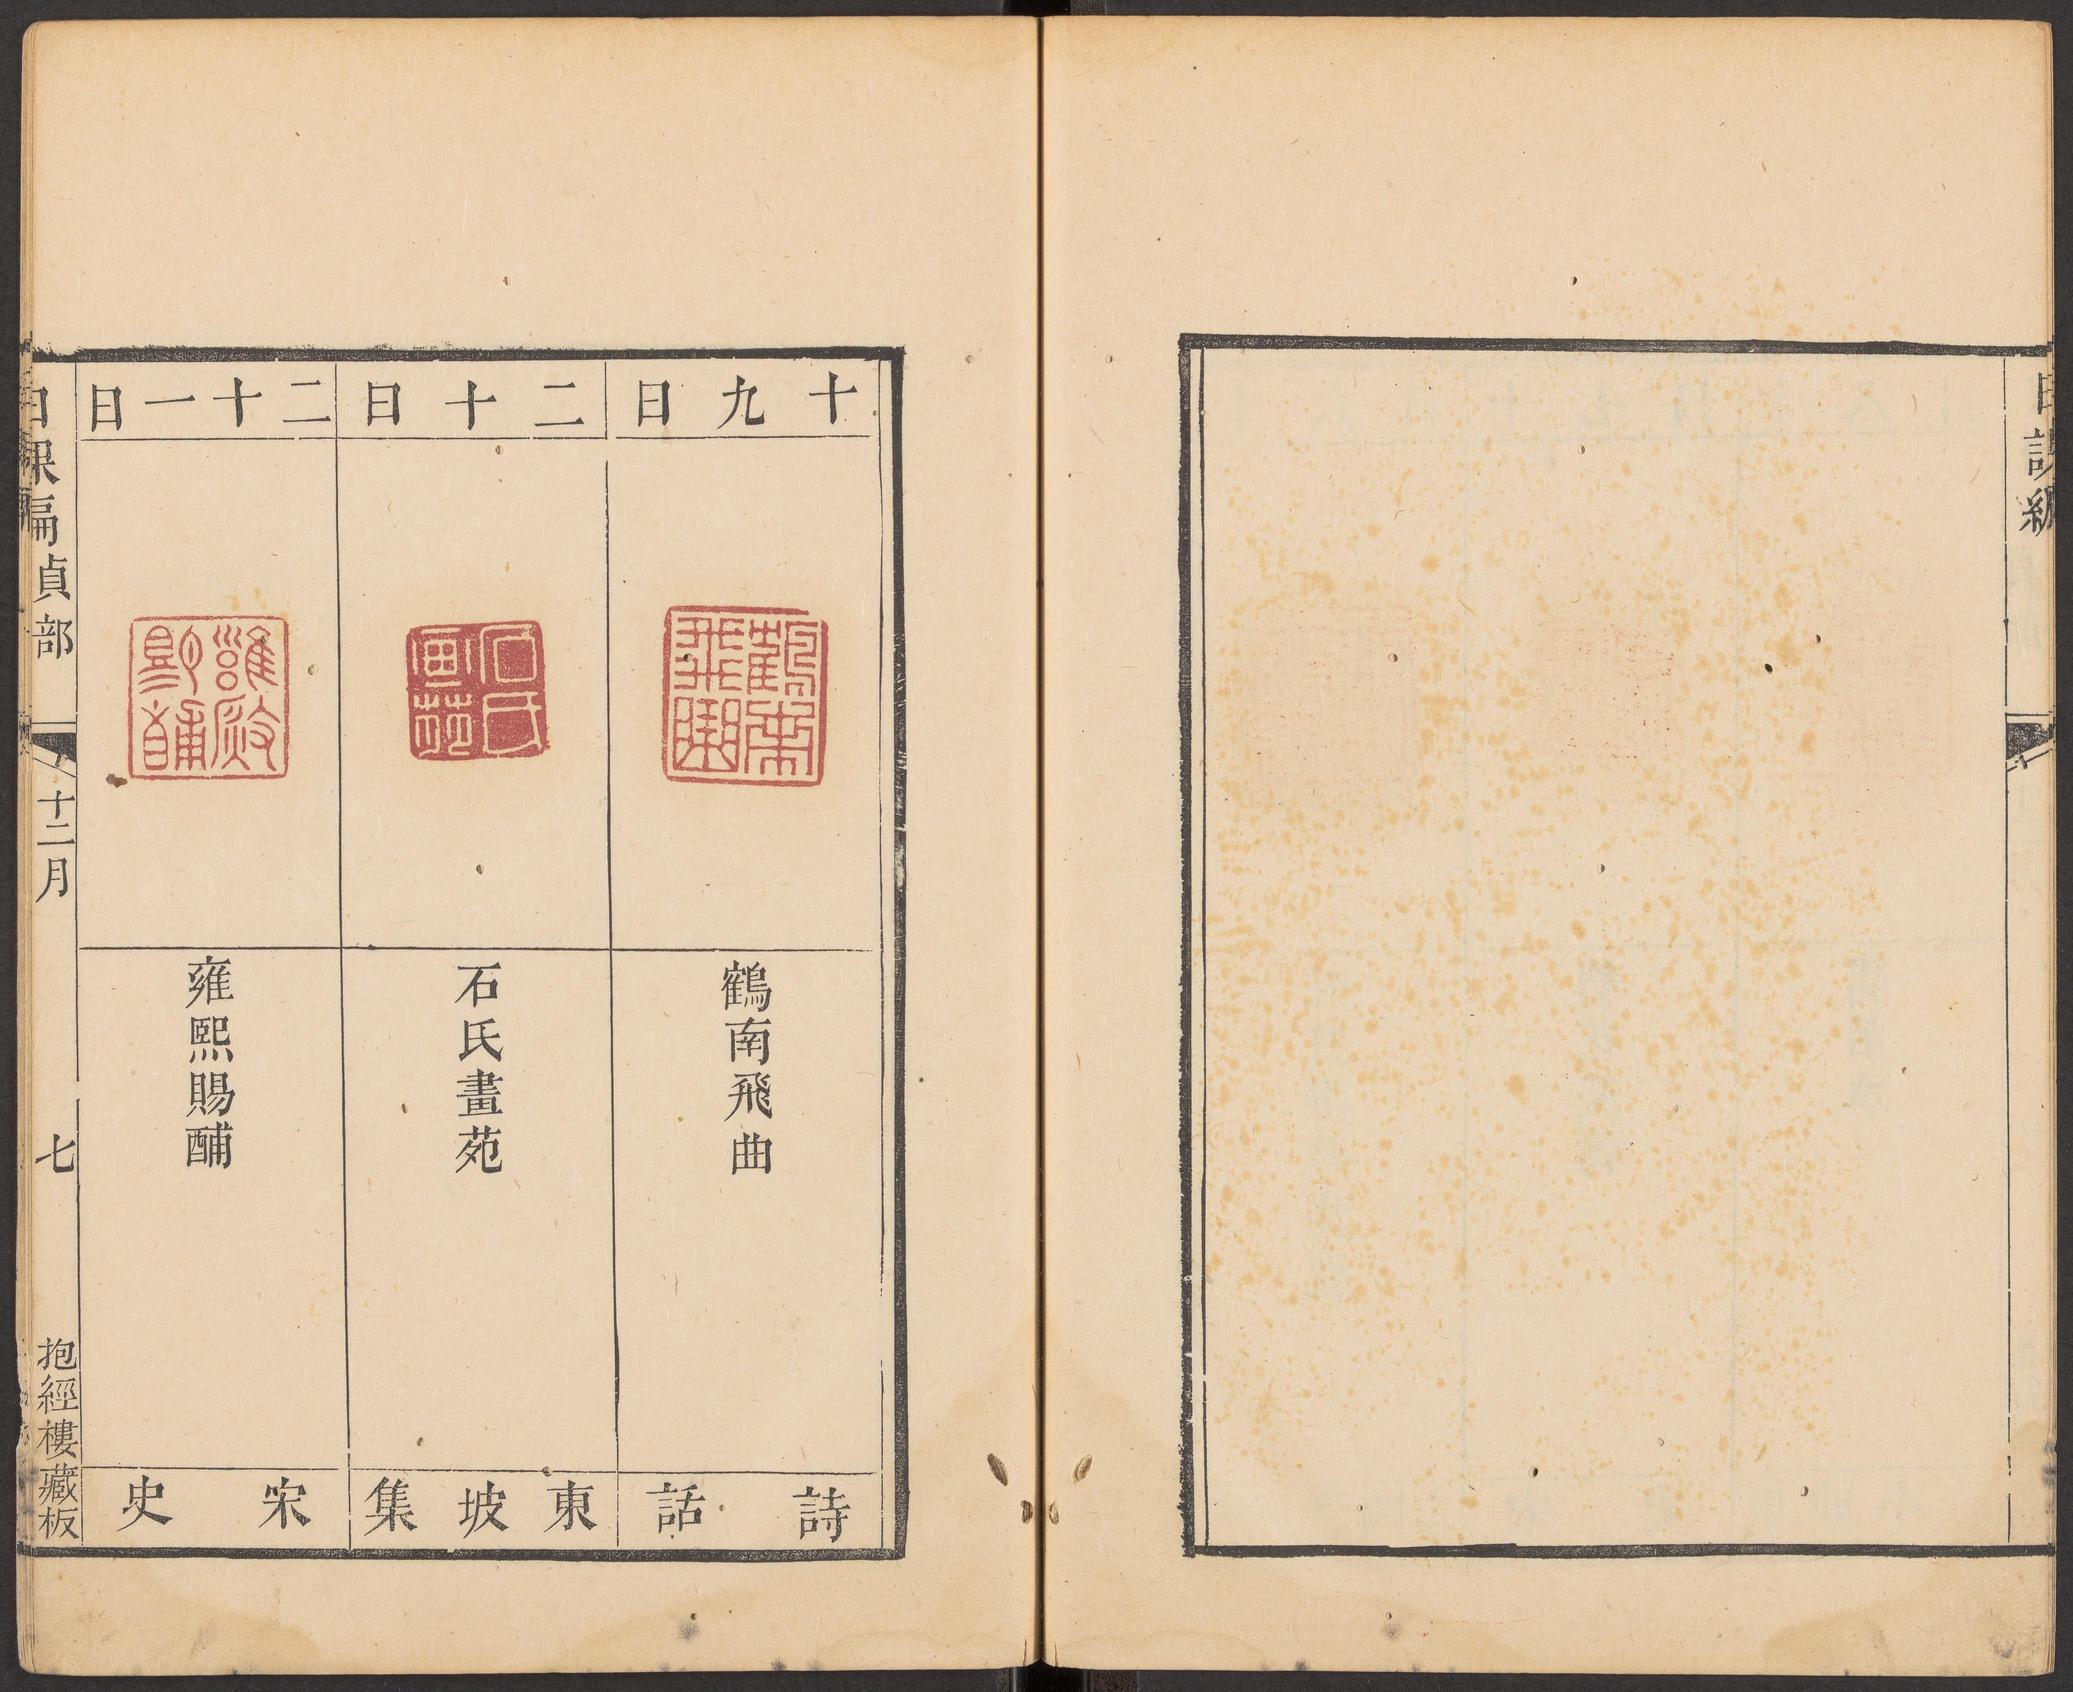 日課編
十九日
鶴南飛曲
詩話
二十日
石氏畫苑
石氏畫苑
東坡集
二十一日
雍熙賜酺
雍熙賜酺
宋史
日課編貞部
十二月
七
抱經樓藏板